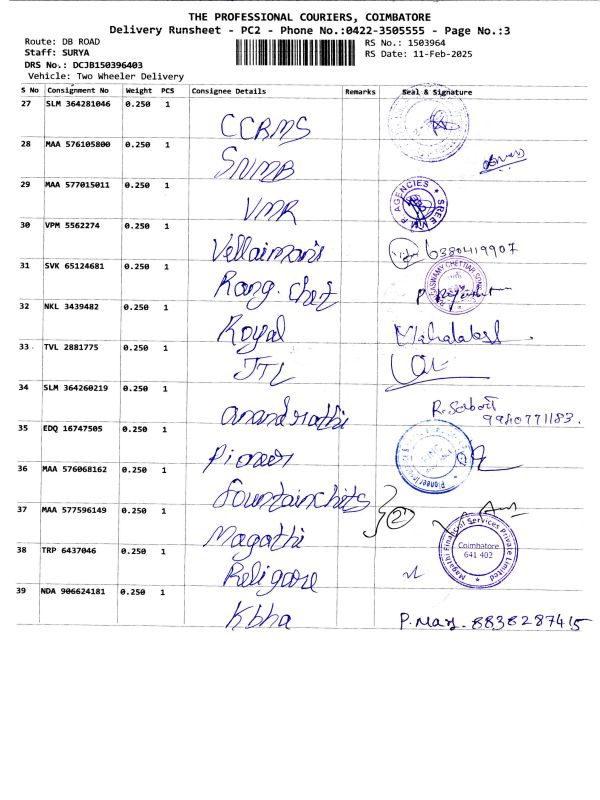 THE PROFESSIONAL COURIERS, COIMBATORE
Delivery Runsheet - PC2 - Phone No.:0422-3505555 - Page No.:3
Route: DB ROAD
RS No.: 1503964
Staff: SURYA
RS Date: 11-Feb-2025
DRS No.: DCJB150396403
Vehicle: Two Wheeler Delivery
S No Consignment No Weight PCS Consignee Details Remarks Seal & Signature
27 SLM 364281046 0.250 1 CCRMS
28 MAA 576105800 0.250 1 SNMB
29 MAA 577015011 0.250 1 VMR AGENCIES
30 VPM 5562274 0.250 1 Vellaiman's 6380419907
31 SVK 65124681 0.250 1 Rang. Chet
32 NKL 3439482 0.250 1 Royal
33 TVL 2881775 0.250 1 JTL
34 SLM 364260219 0.250 1 anandrathi 9940771183.
35 EDQ 16747505 0.250 1 Pioneer
36 MAA 576068162 0.250 1 fountainchits
37 MAA 577596149 0.250 1 Magathi 2
38 TRP 6437046 0.250 1 Religare Magathi Financial Services Private Limited Coimbatore 641 402
39 NDA 906624181 0.250 1 Kbha P. Mary. 8838287415